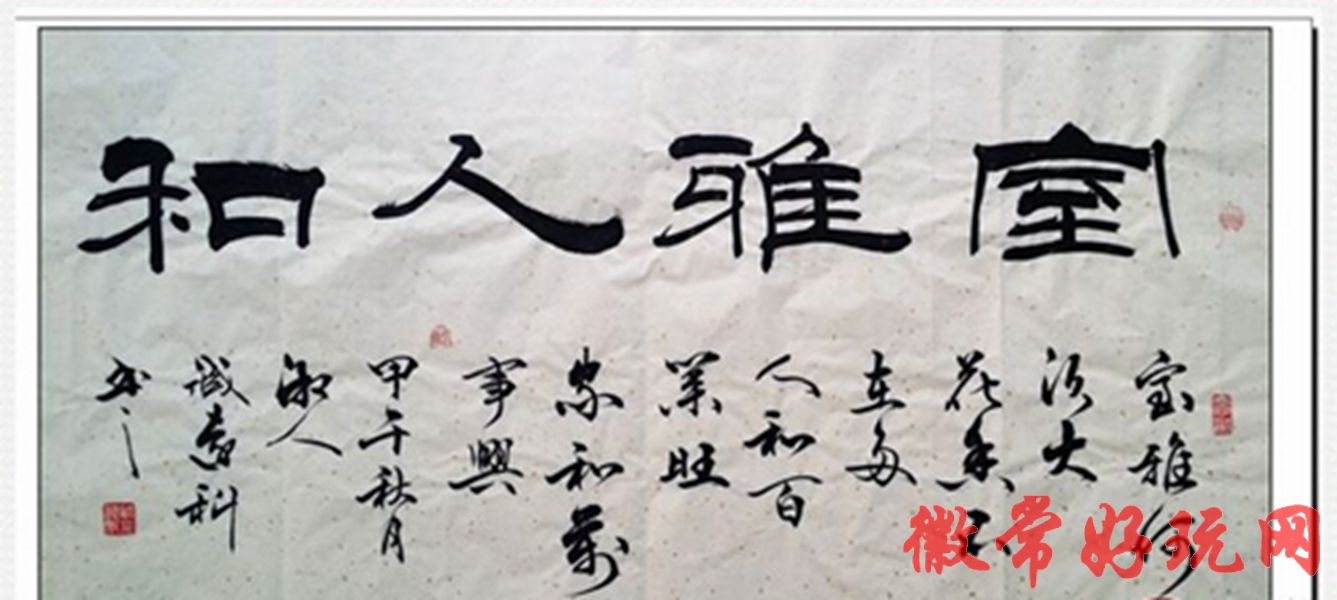 室雅人和
室雅何
须大
花香不
在多
人和百
業旺
家和萬
事興
甲午秋月
淑人
誠書科
书之
徽常好玩网